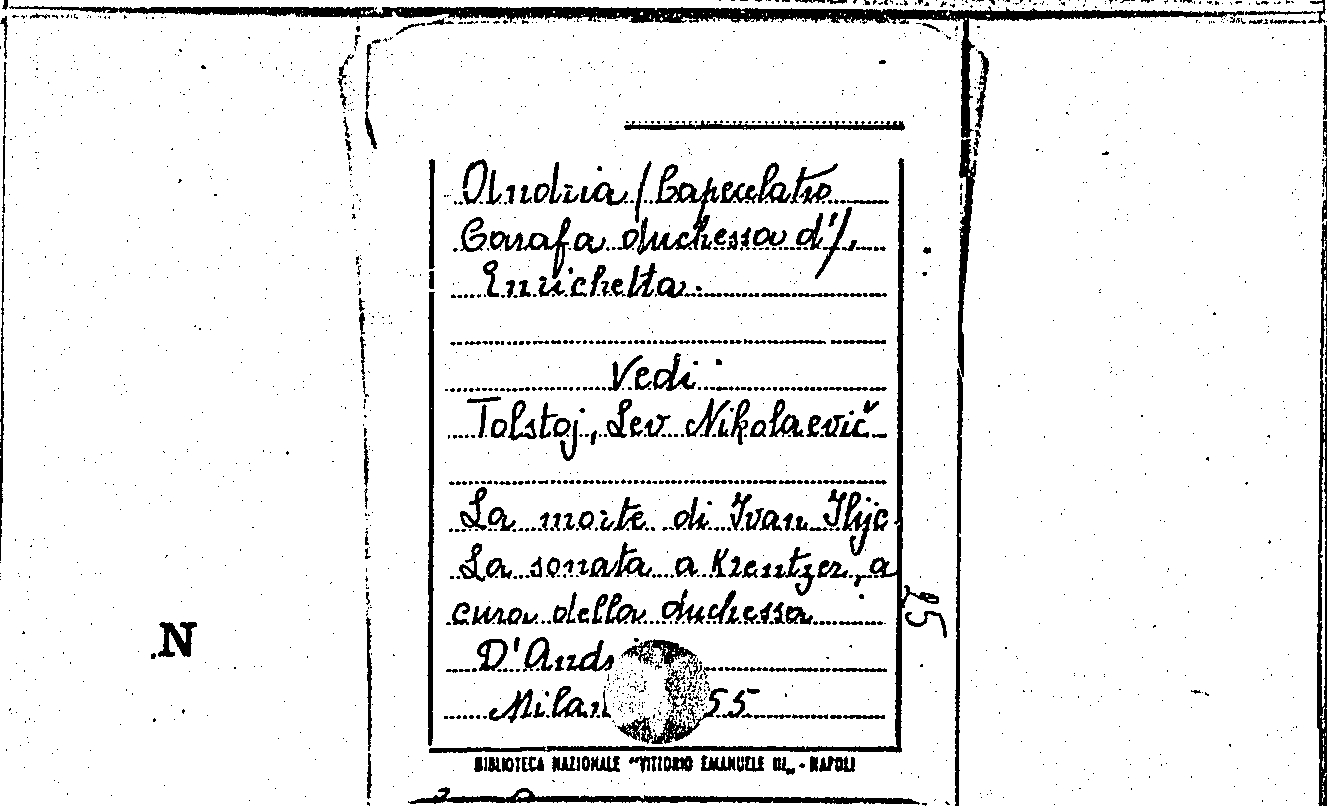 Andria / Capecelatro
Carafa duchessa d'/.
Enrichetta.
Vedi:
Tolstoj, Lev Nikolaevič
La morte di Ivan Ilijc
La sonata a Kreutzer, a
cura della duchessa
D'Andri
Milan 55
25
N
BIBLIOTECA NAZIONALE "VITTORIO EMANUELE III„ - NAPOLI